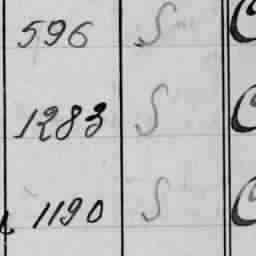 596 S C
1283 S C
1190 S C